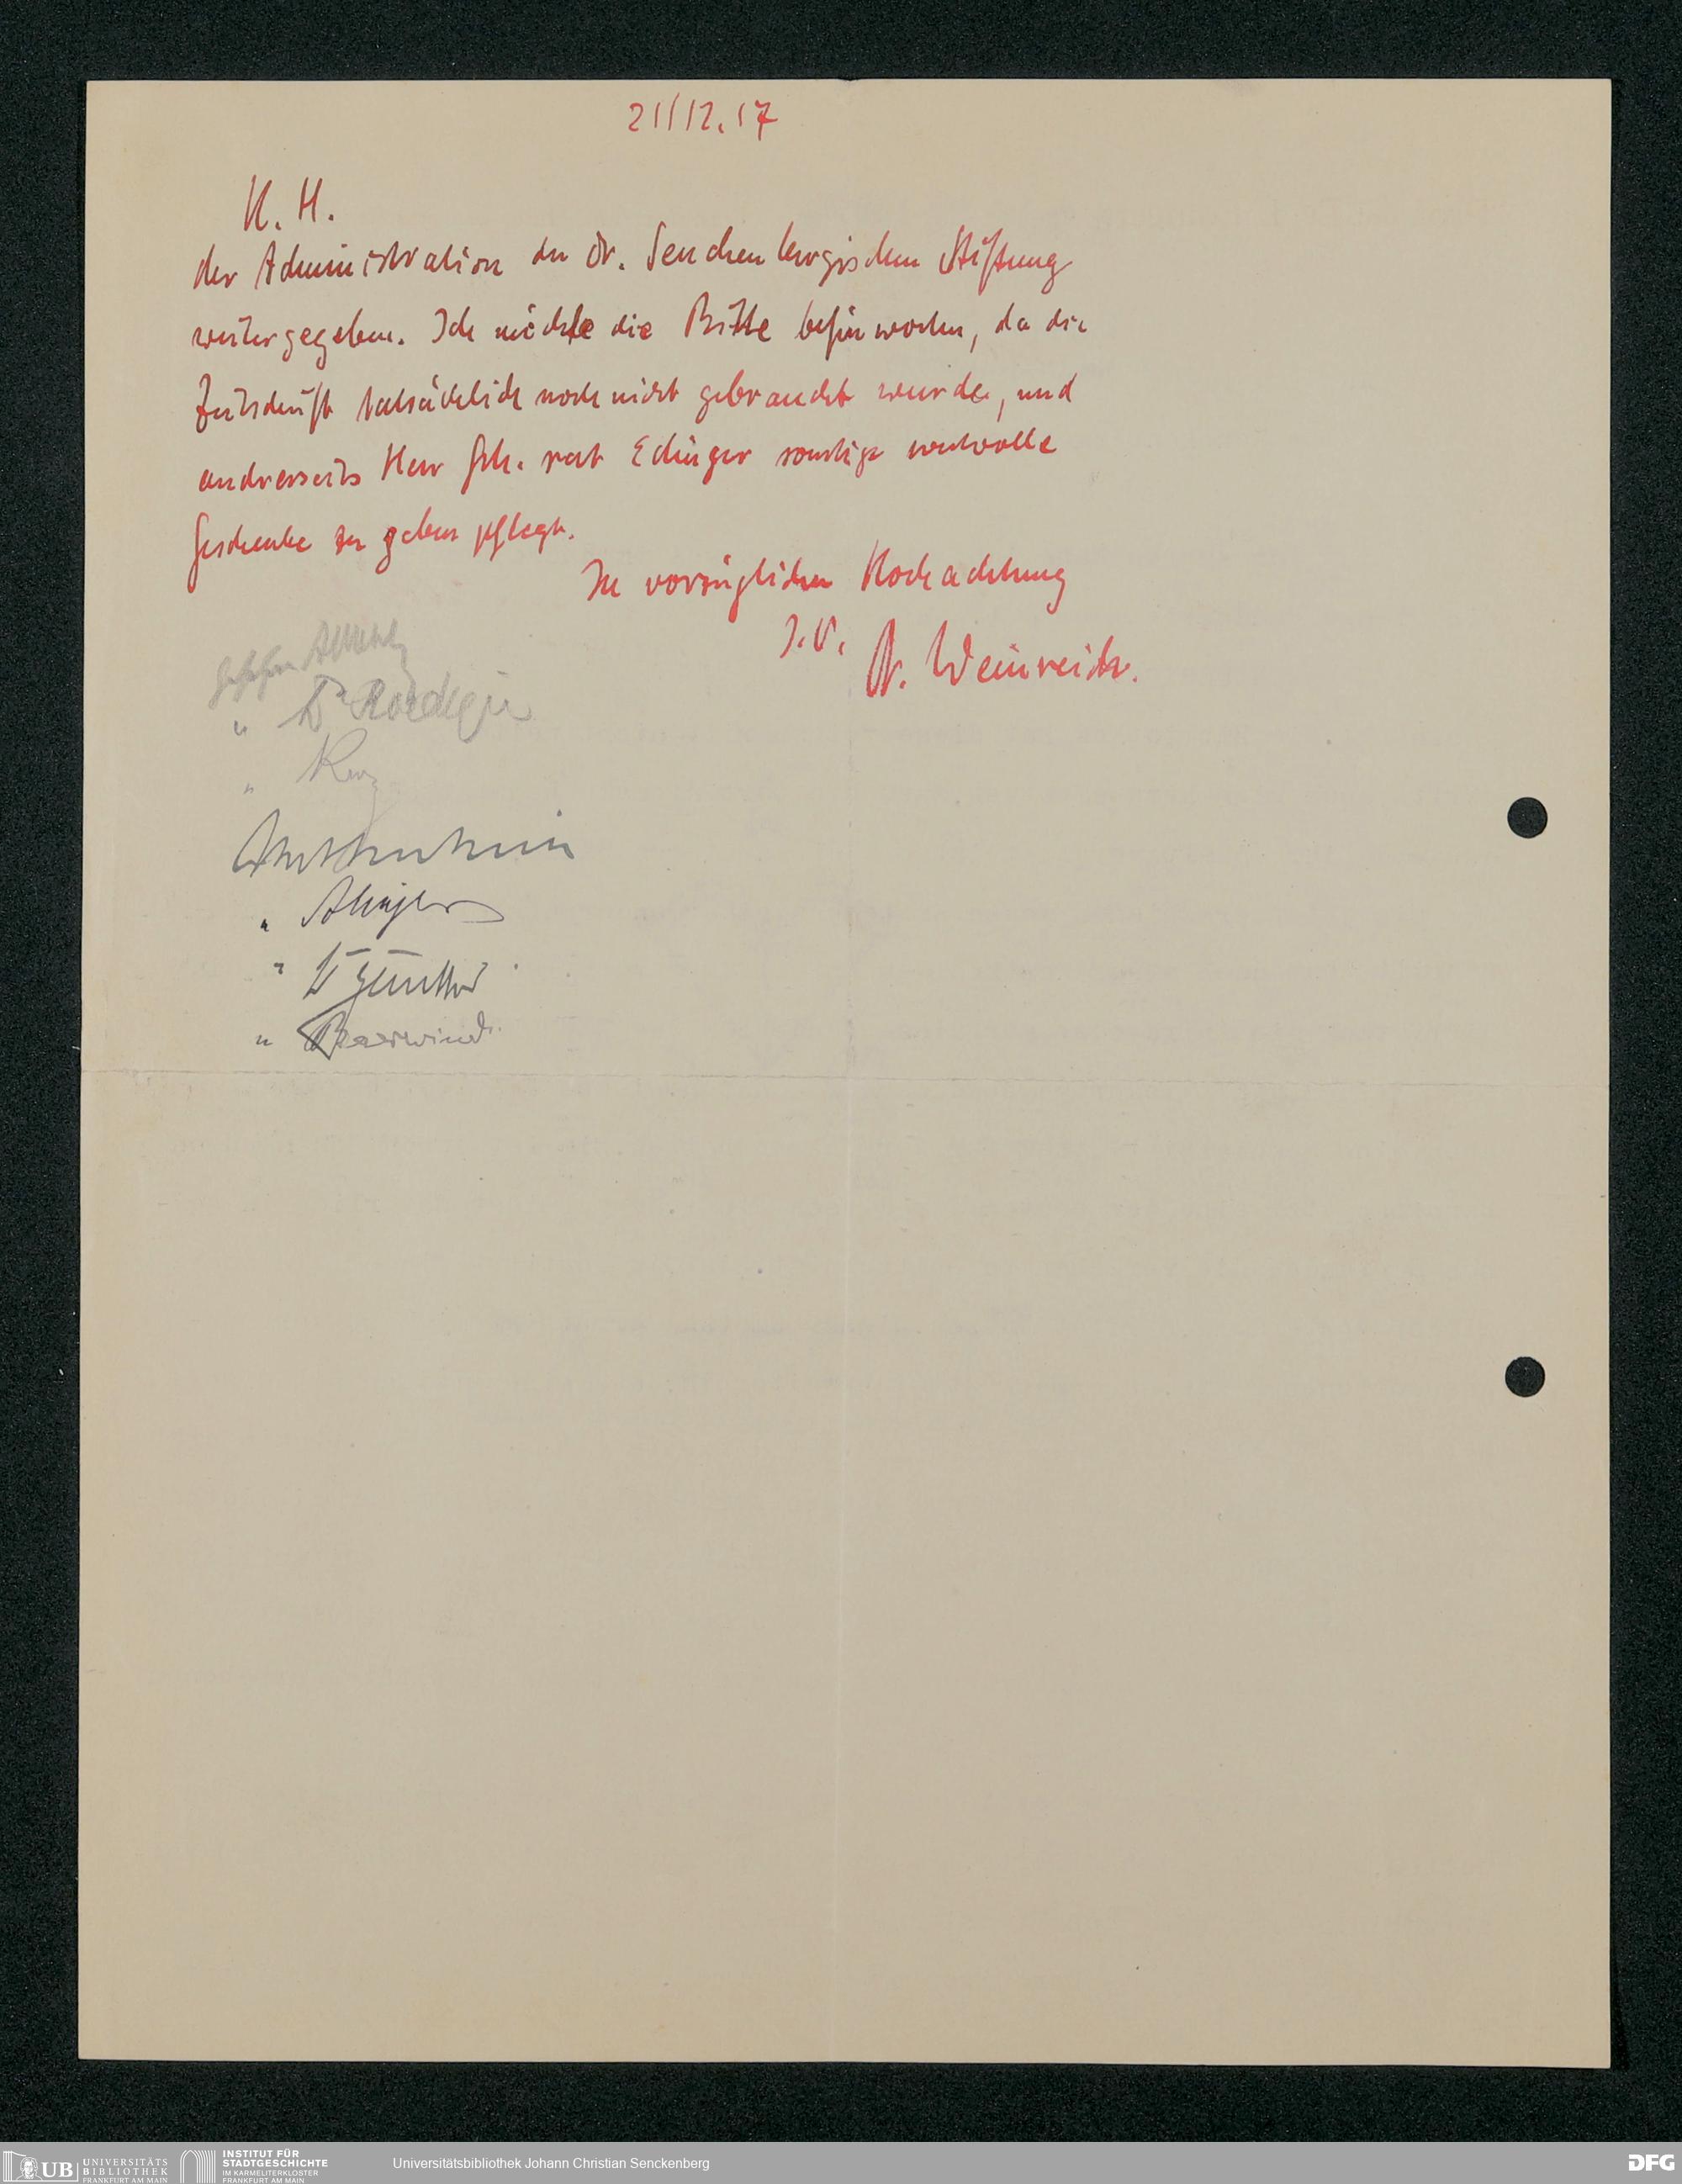 21/12.17
U. H.
der Administration der Dr. Senckenbergischen Stiftung
weitergegeben. Ich möchte die Bitte befürworten, da die
Zeitschrift tatsächlich noch nicht gebraucht wurde, und
andrerseits Herr Geh. rat Edinger sonstige wertvolle
Geschenke zu geben pflegt.
In vorzüglicher Hochachtung
I. V. Dr. Weinreich.
Gesehen
" Dr Roediger
"
"
" Dr Günther
" Baerwind
UB UNIVERSITÄTS BIBLIOTHEK FRANKFURT AM MAIN
INSTITUT FÜR STADTGESCHICHTE IM KARMELITERKLOSTER FRANKFURT AM MAIN
Universitätsbibliothek Johann Christian Senckenberg
DFG